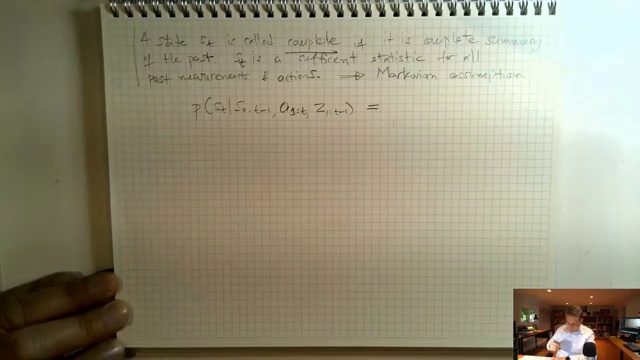 A state st is called complete if it is complete summary
of the past st is a sufficent statistic for all
past measurements & actions. ⟹ Markovian assumption
p(st|s0:t-1, a1:t, z1:t-1) =